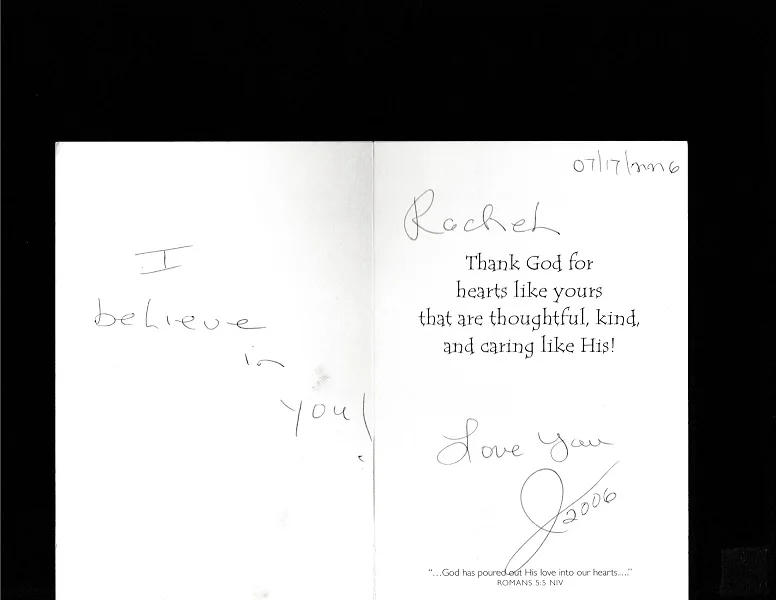 I
believe
in
you!
07/17/2006
Rachel
Thank God for
hearts like yours
that are thoughtful, kind,
and caring like His!
Love You
J 2006
"...God has poured out His love into our hearts...."
ROMANS 5:5 NIV